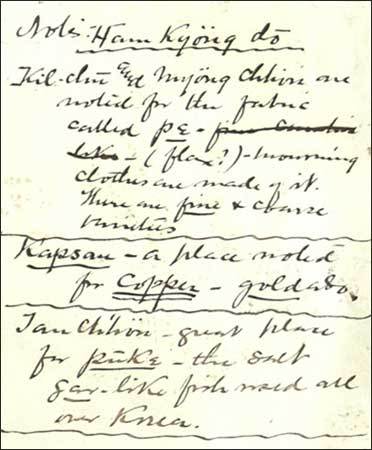 Note: Ham Kyöng dö
Kil-chu and Myöng Chhön are
noted for the fabric
called pe - fine
like - (flax?) - mourning
clothes are made of it.
There are fine & coarse
varieties
Kapsan - a place noted
for Copper - gold also.
Tan Chhön - great place
for puke - the salt
gar-like fish used all
over Korea.